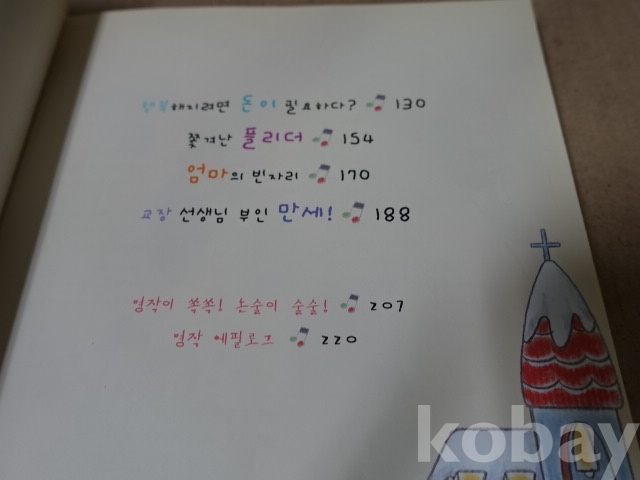 행복해지려면 돈이 필요하다? 130
쫓겨난 플리더 154
엄마의 빈자리 170
교장 선생님 부인 만세! 188
영작이 쏙쏙! 논술이 술술! 207
영작 에필로그 220
kobay